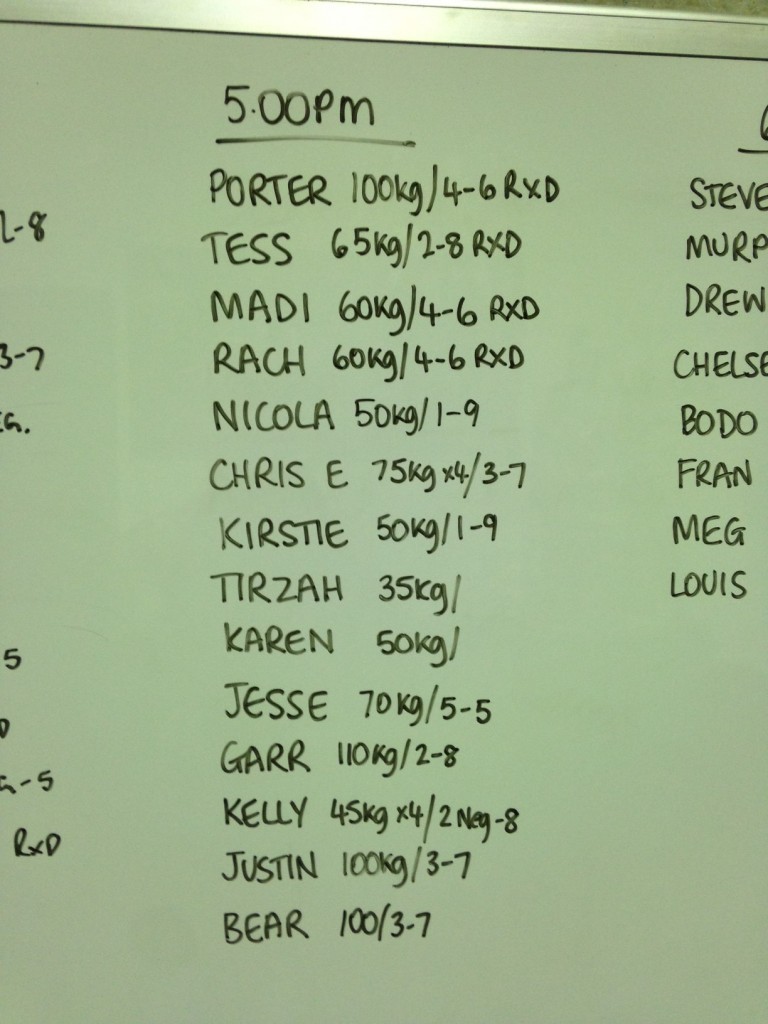 5.00PM
PORTER 100kg/4-6 RXD
TESS 65kg/2-8 RXD
MADI 60kg/4-6 RXD
RACH 60kg/4-6 RXD
NICOLA 50kg/1-9
CHRIS E 75kg x4/3-7
KIRSTIE 50kg/1-9
TIRZAH 35kg/
KAREN 50kg/
JESSE 70kg/5-5
GARR 110kg/2-8
KELLY 45kg x4/2 Neg-8
JUSTIN 100kg/3-7
BEAR 100/3-7
2-8
3-7
5
-5
RXD
STEVE
MURP
DREW
CHELSE
BODO
FRAN
MEG
LOUIS